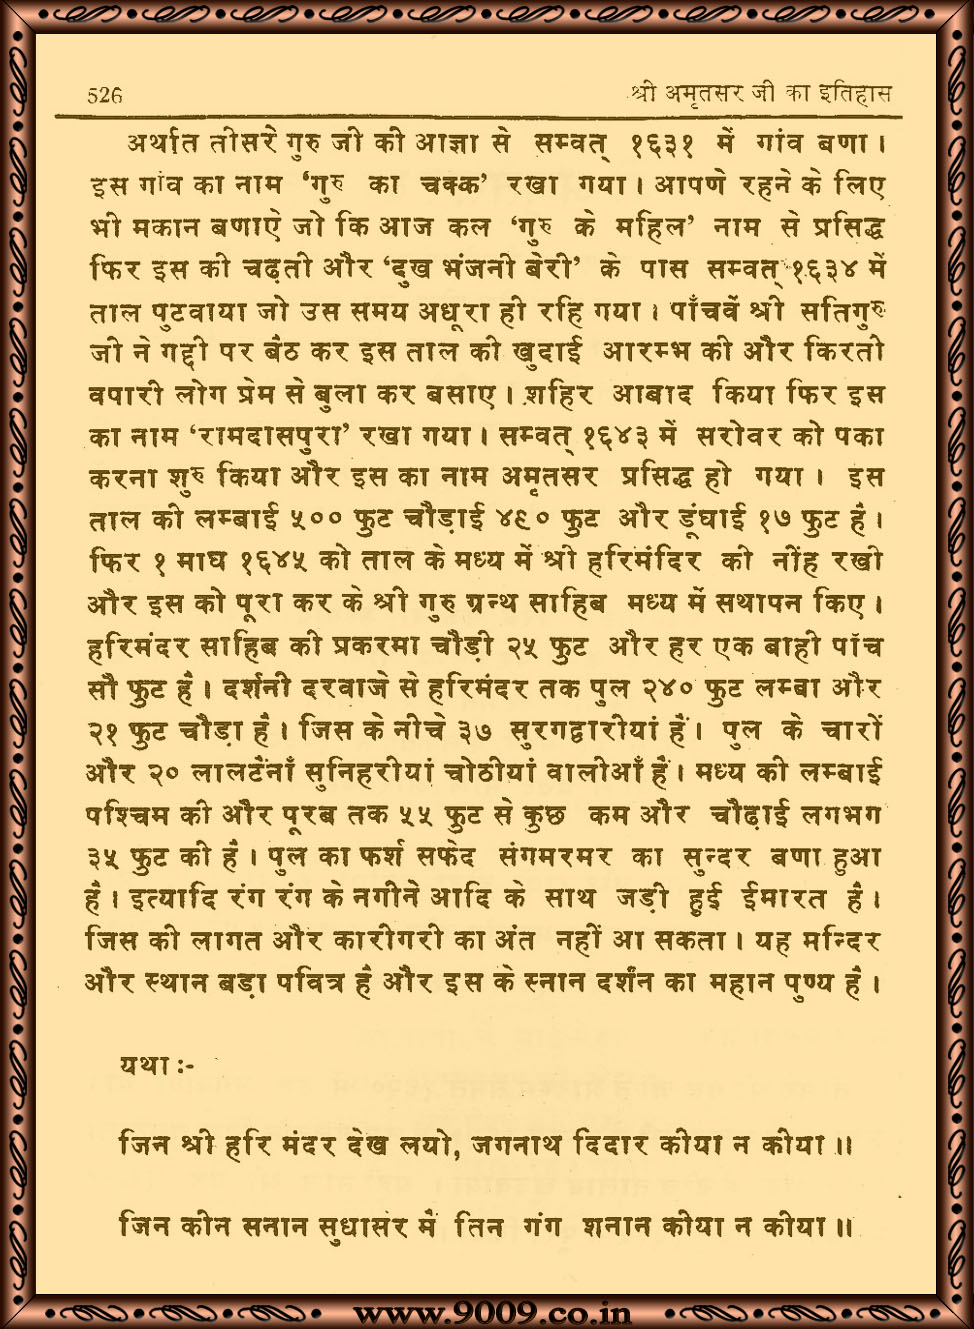 526 श्री अमृतसर जी का इतिहास
अर्थात तीसरे गुरु जी की आज्ञा से सम्वत् १६३१ में गांव बणा ।
इस गांव का नाम ‘गुरु का चक्क’ रखा गया । आपणे रहने के लिए
भी मकान बणाऐ जो कि आज कल ‘गुरु के महिल’ नाम से प्रसिद्ध
फिर इस की चढ़ती और ‘दुख भंजनी बेरी’ के पास सम्वत् १६३४ में
ताल पुटवाया जो उस समय अधूरा ही रहि गया । पाँचवें श्री सतिगुरु
जी ने गद्दी पर बैठ कर इस ताल की खुदाई आरम्भ की और किरती
वपारी लोग प्रेम से बुला कर बसाए । शहिर आबाद किया फिर इस
का नाम ‘रामदासपुरा’ रखा गया । सम्वत् १६४३ में सरोवर को पका
करना शुरु किया और इस का नाम अमृतसर प्रसिद्ध हो गया । इस
ताल की लम्बाई ५०० फुट चौड़ाई ४९० फुट और डूंघाई १७ फुट है ।
फिर १ माघ १६४५ को ताल के मध्य में श्री हरिमंदिर की नींह रखी
और इस को पूरा कर के श्री गुरु ग्रन्थ साहिब मध्य में सथापन किए ।
हरिमंदर साहिब की प्रकरमा चौड़ी २५ फुट और हर एक बाही पाँच
सौ फुट है । दर्शनी दरवाजे से हरिमंदर तक पुल २४० फुट लम्बा और
२१ फुट चौड़ा है । जिस के नीचे ३७ सुरगद्वारीयां हैं । पुल के चारों
और २० लालटैनाँ सुनिहरीयां चोठीयां वालीआँ हैं । मध्य की लम्बाई
पश्चिम की और पूरब तक ५५ फुट से कुछ कम और चौढ़ाई लगभग
३५ फुट की है । पुल का फर्श सफेद संगमरमर का सुन्दर बणा हुआ
है । इत्यादि रंग रंग के नगीने आदि के साथ जड़ी हुई ईमारत है ।
जिस की लागत और कारीगरी का अंत नहीं आ सकता । यह मन्दिर
और स्थान बड़ा पवित्र है और इस के स्नान दर्शन का महान पुण्य है ।
यथा :-
जिन श्री हरि मंदर देख लयो, जगनाथ दिदार कीया न कीया ॥
जिन कीन सनान सुधासर मैं तिन गंग शनान कीया न कीया ॥
www.9009.co.in